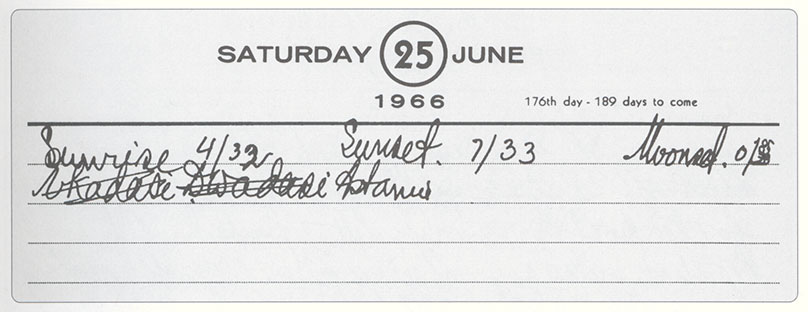 SATURDAY 25 JUNE
1966 176th day - 189 days to come
Sunrise 4/32 Sunset. 7/33 Moonset.
Ekadasi Dwadasi